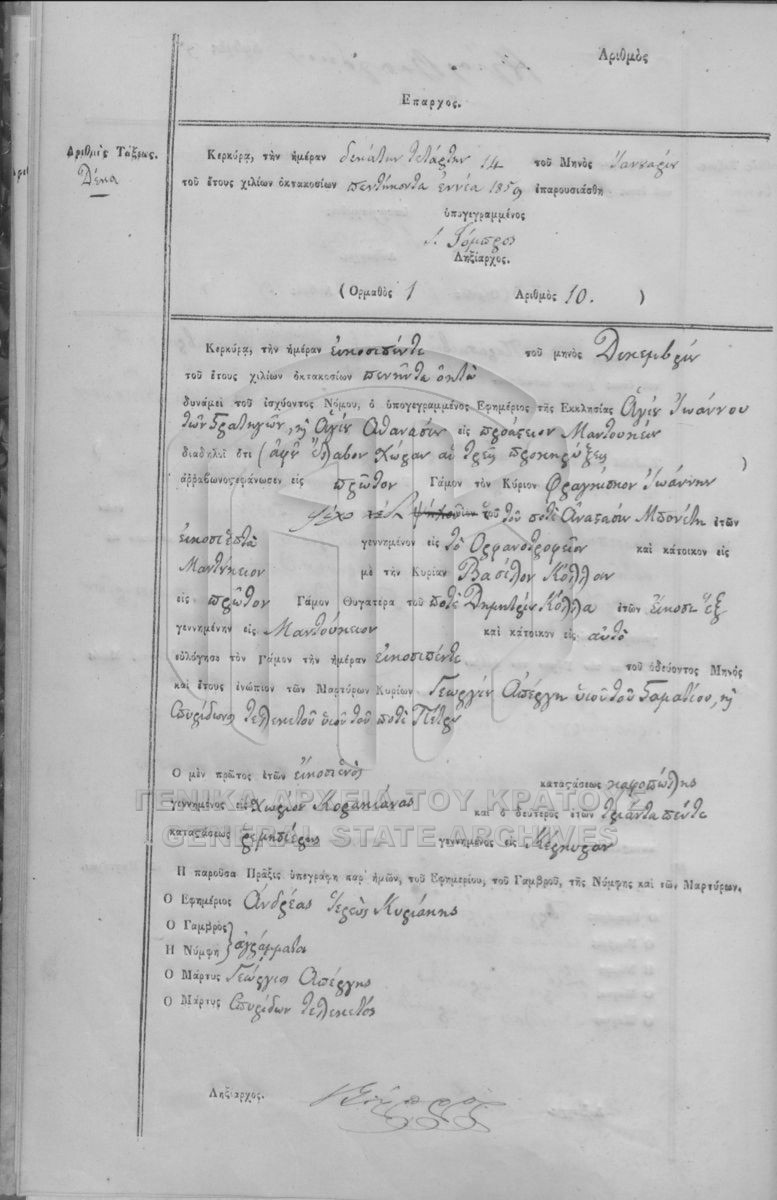 Ἀριθμὸς
Ἔπαρχος.
Ἀριθμὸς Τάξεως.
Δέκα
Κερκύρᾳ, τὴν ἡμέραν δεκάτην τετάρτην 14 τοῦ Μηνὸς Ἰανουαρίου
τοῦ ἔτους χιλίων ὀκτακοσίων πεντήκοντα ἐννέα 1859 ἐπαρουσιάσθη
ὑπογεγραμμένος
Ληξίαρχος.
(Ὁρμαθὸς 1 Ἀριθμὸς 10. )
Κερκύρᾳ, τὴν ἡμέραν εἰκοσιπέντε τοῦ μηνὸς Δεκεμβρίου
τοῦ ἔτους χιλίων ὀκτακοσίων πενῆντα ὀκτὼ
δυνάμει τοῦ ἰσχύοντος Νόμου, ὁ ὑπογεγραμμένος Ἐφημέριος τῆς Ἐκκλησίας Ἁγίου Ἰωάννου
καὶ Ἁγίου Ἀθανασίου εἰς προάστειον Μαντουκίου
διαδηλοῖ ὅτι (ἀφ' οὗ ἔλαβον χώραν αἱ τρεῖς προκηρύξεις )
ἀῤῥαβωνοςεφάνωσεν εἰς πρῶτον Γάμον τὸν Κύριον Φραγκίσκον Ἰωάννην
τοῦ ποτὲ Ἀναστασίου Μπονέτη ἐτῶν
εἰκοσιεπτὰ γεννημένον εἰς τὸ Ὀρφανοτροφεῖον καὶ κάτοικον εἰς
Μαντούκιον μὲ τὴν Κυρίαν Βασίλω Κόλλαν
εἰς πρῶτον Γάμον Θυγατέρα τοῦ ποτὲ Δημητρίου Κόλλα ἐτῶν εἴκοσι ἓξ
γεννημένην εἰς Μαντούκιον καὶ κάτοικον εἰς αὐτὸ
εὐλόγησε τὸν Γάμον τὴν ἡμέραν εἰκοσιπέντε τοῦ ὁδεύοντος Μηνὸς
καὶ ἔτους ἐνώπιον τῶν Μαρτύρων Κυρίων Γεωργίου Ἀπέργη υἱοῦ τοῦ Σταματίου, καὶ
Σπυρίδωνος τελεκετοῦ υἱοῦ τοῦ ποτὲ Πέτρου
Ὁ μὲν πρῶτος ἐτῶν εἰκοσιενὸς καταςάσεως καφοπώλης
γεννημένος εἰς Χωρίον Κορακιάνας καὶ ὁ δεύτερος ἐτῶν τριάντα πέντε
καταςάσεως γεννημένος εἰς Κέρκυραν
Ἡ παροῦσα Πρᾶξις ὑπεγράφη παρ' ἡμῶν, τοῦ Ἐφημερίου, τοῦ Γαμβροῦ, τῆς Νύμφης καὶ τῶν Μαρτύρων.
Ὁ Ἐφημέριος Ἀνδρέας Ἱερεὺς Κυριάκης
Ὁ Γαμβρὸς
Ἡ Νύμφη ἀγράμματοι
Ὁ Μάρτυς Γεώργιος Ἀπέργης
Ὁ Μάρτυς Σπυρίδων τελεκετός
Ληξίαρχος.
ΓΕΝΙΚΑ ΑΡΧΕΙΑ ΤΟΥ ΚΡΑΤΟΥΣ
GENERAL STATE ARCHIVES